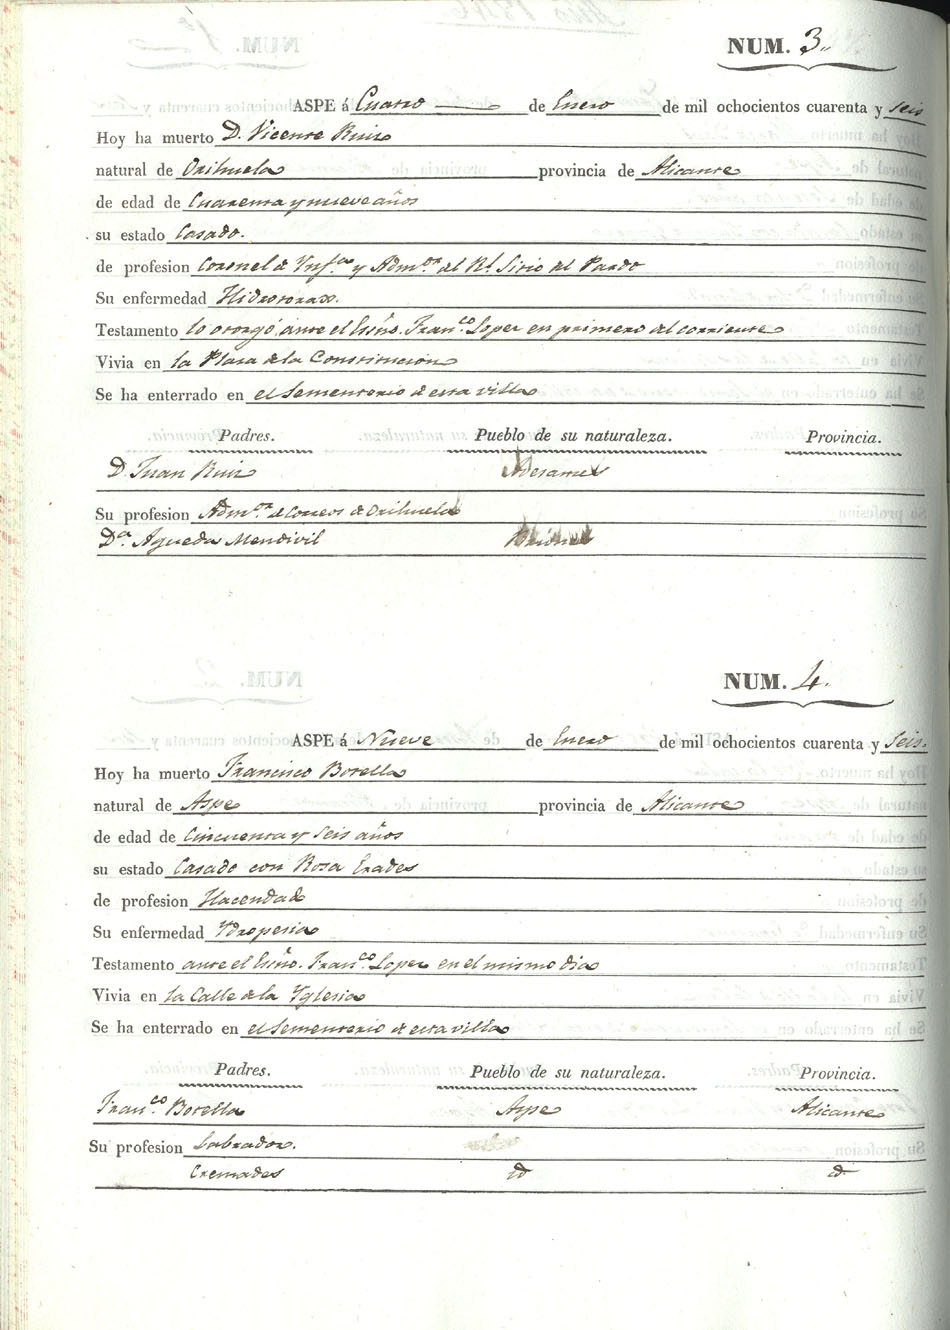 NUM. 3.
ASPE á Cuatro de Enero de mil ochocientos cuarenta y seis
Hoy ha muerto D. Vicente Ruiz
natural de Orihuela provincia de Alicante
de edad de Cuarenta y nueve años
su estado Casado.
de profesion Coronel de Ynf.ª y Adm.or del R.l Sitio del Pardo
Su enfermedad Hidrotorax.
Testamento lo otorgó, ante el Esño. Fran.co Lopez en primero del corriente
Vivia en la Plasa de la Constitucion
Se ha enterrado en el Sementerio de esta villa
Padres. Pueblo de su naturaleza. Provincia.
D Juan Ruiz
Su profesion Adm.or de Correos de Orihuela
D.ª Agueda Mendivil
NUM. 4.
ASPE á Nueve de Enero de mil ochocientos cuarenta y Seis.
Hoy ha muerto Francisco Botella
natural de Aspe provincia de Alicante
de edad de Cincuenta y Seis años
su estado Casado con Rosa Erades
de profesion Hacendado
Su enfermedad Ydropesia
Testamento ante el Esño. Fran.co Lopez en el mismo dia
Vivia en la Calle de la Yglesia
Se ha enterrado en el Sementerio de esta villa
Padres. Pueblo de su naturaleza. Provincia.
Fran.co Botella Aspe Alicante
Su profesion Labrador.
Cremades id id